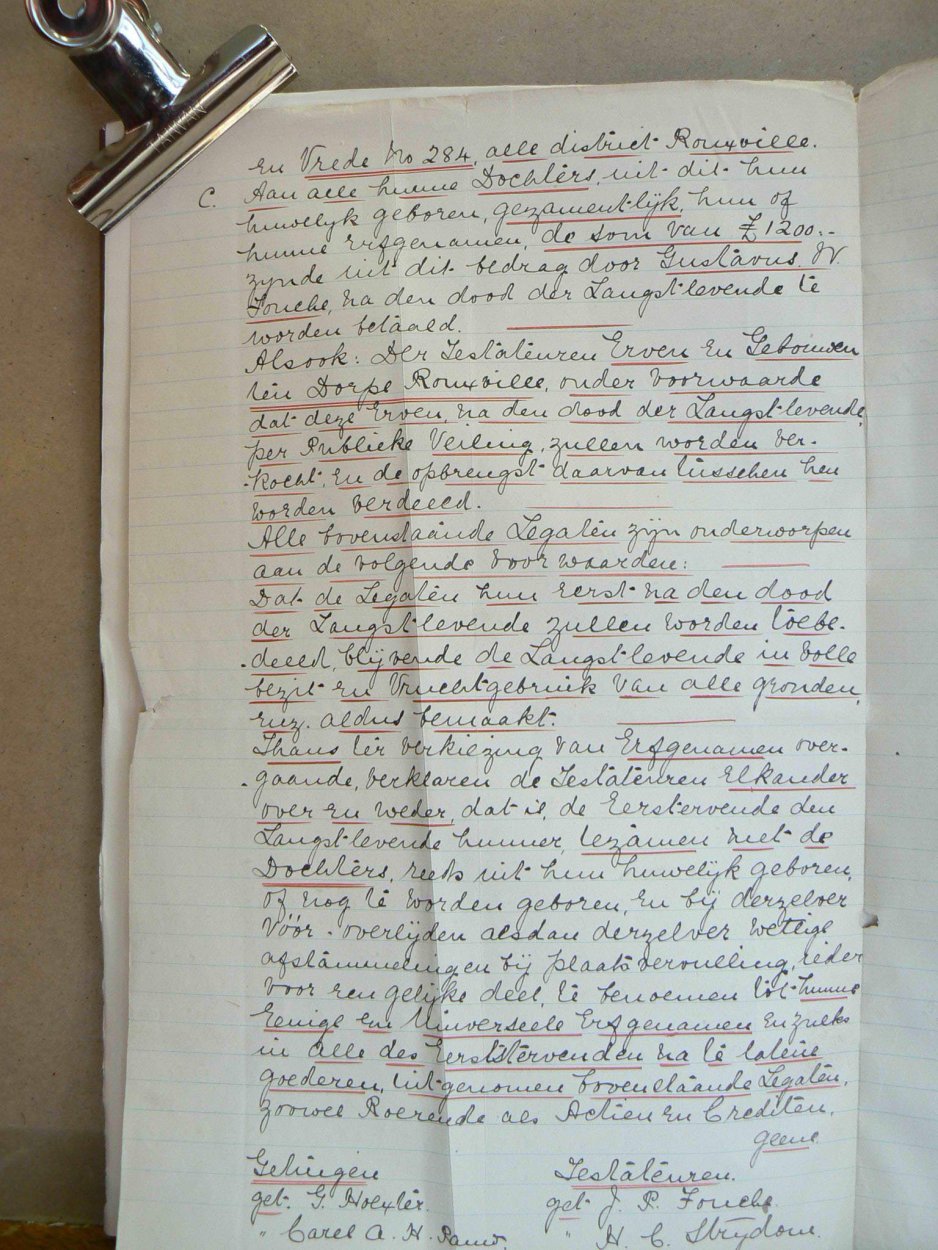 TAIWAN
en Vrede No 284, alle district Rouxville.
C. Aan alle hunne Dochters, uit dit hun
huwelyk geboren, gezamentlijk, hun of
hunne erfgenamen, de som van £1200:-
zynde uit dit bedrag door Gustavus W
Fouche, na den dood der Langstlevende te
worden betaald.
Alsook: Der Testateuren Erven en Gebouwen
ten Dorpe Rouxville, onder voorwaarde
dat deze Erven, na den dood der Langstlevende,
per Publieke Veiling, zullen worden ver-
-kocht, en de opbrengst daarvan tusschen hen
worden verdeeld.
Alle bovenstaande Legaten zijn onderworpen
aan de volgende voorwaarden:
Dat de Legaten hun eerst na den dood
der Langstlevende zullen worden toebe-
-deeld, blijvende de Langstlevende in volle
bezit en Vruchtgebruik van alle gronden,
enz. aldus bemaakt.
Thans ter verkiezing van Erfgenamen over-
-gaande, verklaren de Testateuren Elkander
over en weder, dat is, de Eerstervende den
Langstlevende hunner, tezamen met de
Dochters, reeds uit hun huwelijk geboren,
of nog te worden geboren, en bij derzelver
Vóór-overlijden alsdan derzelver wettige
afstammelingen bij plaatsvervulling, ieder
voor een gelijke deel, te benoemen tot hunne
Eenige en Universeele Erfgenamen en zulks
in alle des Eerststervenden na te latene
goederen, uitgenomen bovenstaande Legaten,
zoowel Roerende als Actien en Crediten,
geene
Getuigen Testateuren.
get. G. Hoexter. get J. P. Fouche
" Carel A. H. Pauw. " H. C. Strydom.